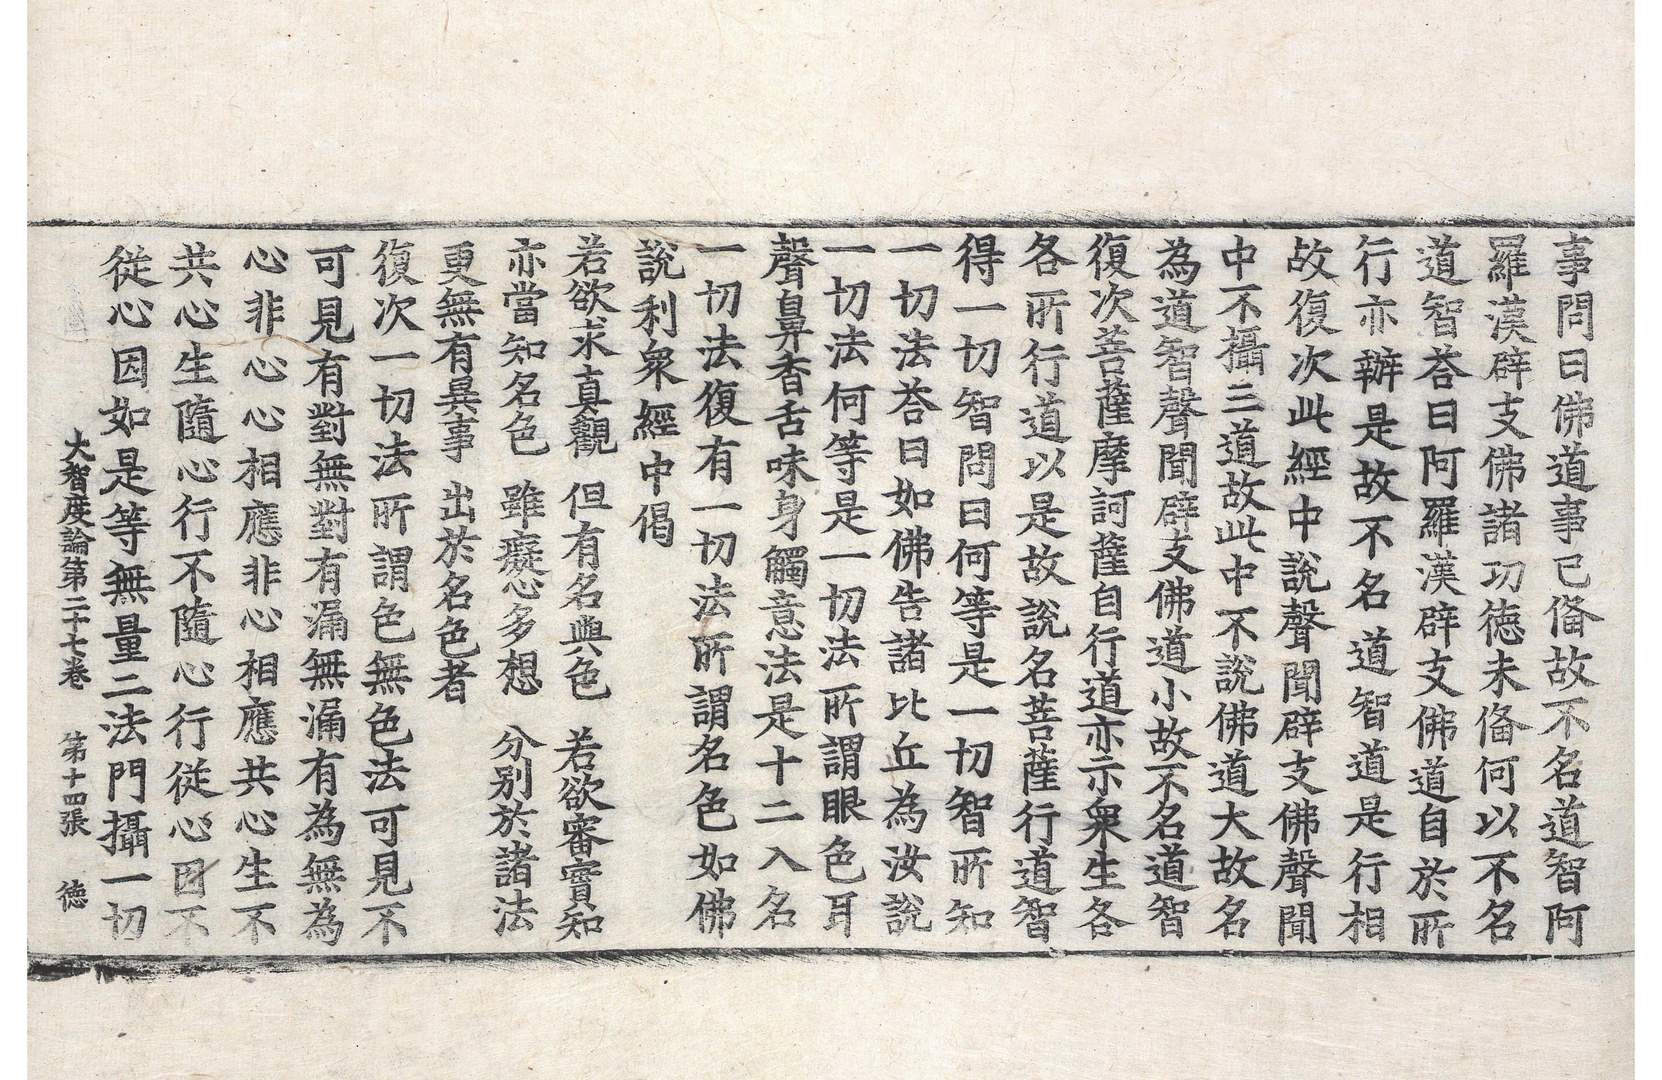 事問曰佛道事已俻故不名道智阿
羅漢辟支佛諸功徳未俻何以不名
道智荅曰阿羅漢辟支佛道自於所
行亦辦是故不名道智道是行相
故復次此經中說聲聞辟支佛聲聞
中不攝三道故此中不說佛道大故名
為道智聲聞辟支佛道小故不名道智
復次菩薩摩訶薩自行道亦示衆生各
各所行道以是故說名菩薩行道智
得一切智問曰何等是一切智所知
一切法荅曰如佛告諸比丘為汝說
一切法何等是一切法所謂眼色耳
聲鼻香舌味身觸意法是十二入名
一切法復有一切法所謂名色如佛
說利衆經中偈
若欲求真觀　但有名與色　若欲審實知
亦當知名色　雖癡心多想　分别於諸法
更無有異事　出於名色者
復次一切法所謂色無色法可見不
可見有對無對有漏無漏有為無為
心非心心相應非心相應共心生不
共心生隨心行不隨心行從心因不
從心因如是等無量二法門攝一切
大智度論第二十七卷　第十四張　徳